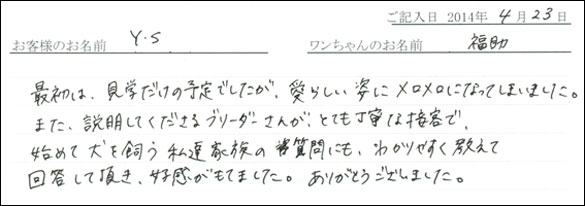 ご記入日 2014年 4月23日
お客様のお名前 Y.S ワンちゃんのお名前 福助
最初は、見学だけの予定でしたが、愛らしい姿にメロメロになってしまいました。
また、説明してくださるブリーダーさんが、とても丁寧な接客で、
始めて犬を飼う私達家族の質問にも、わかりやすく教えて
回答して頂き、好感がもてました。ありがとうございました。